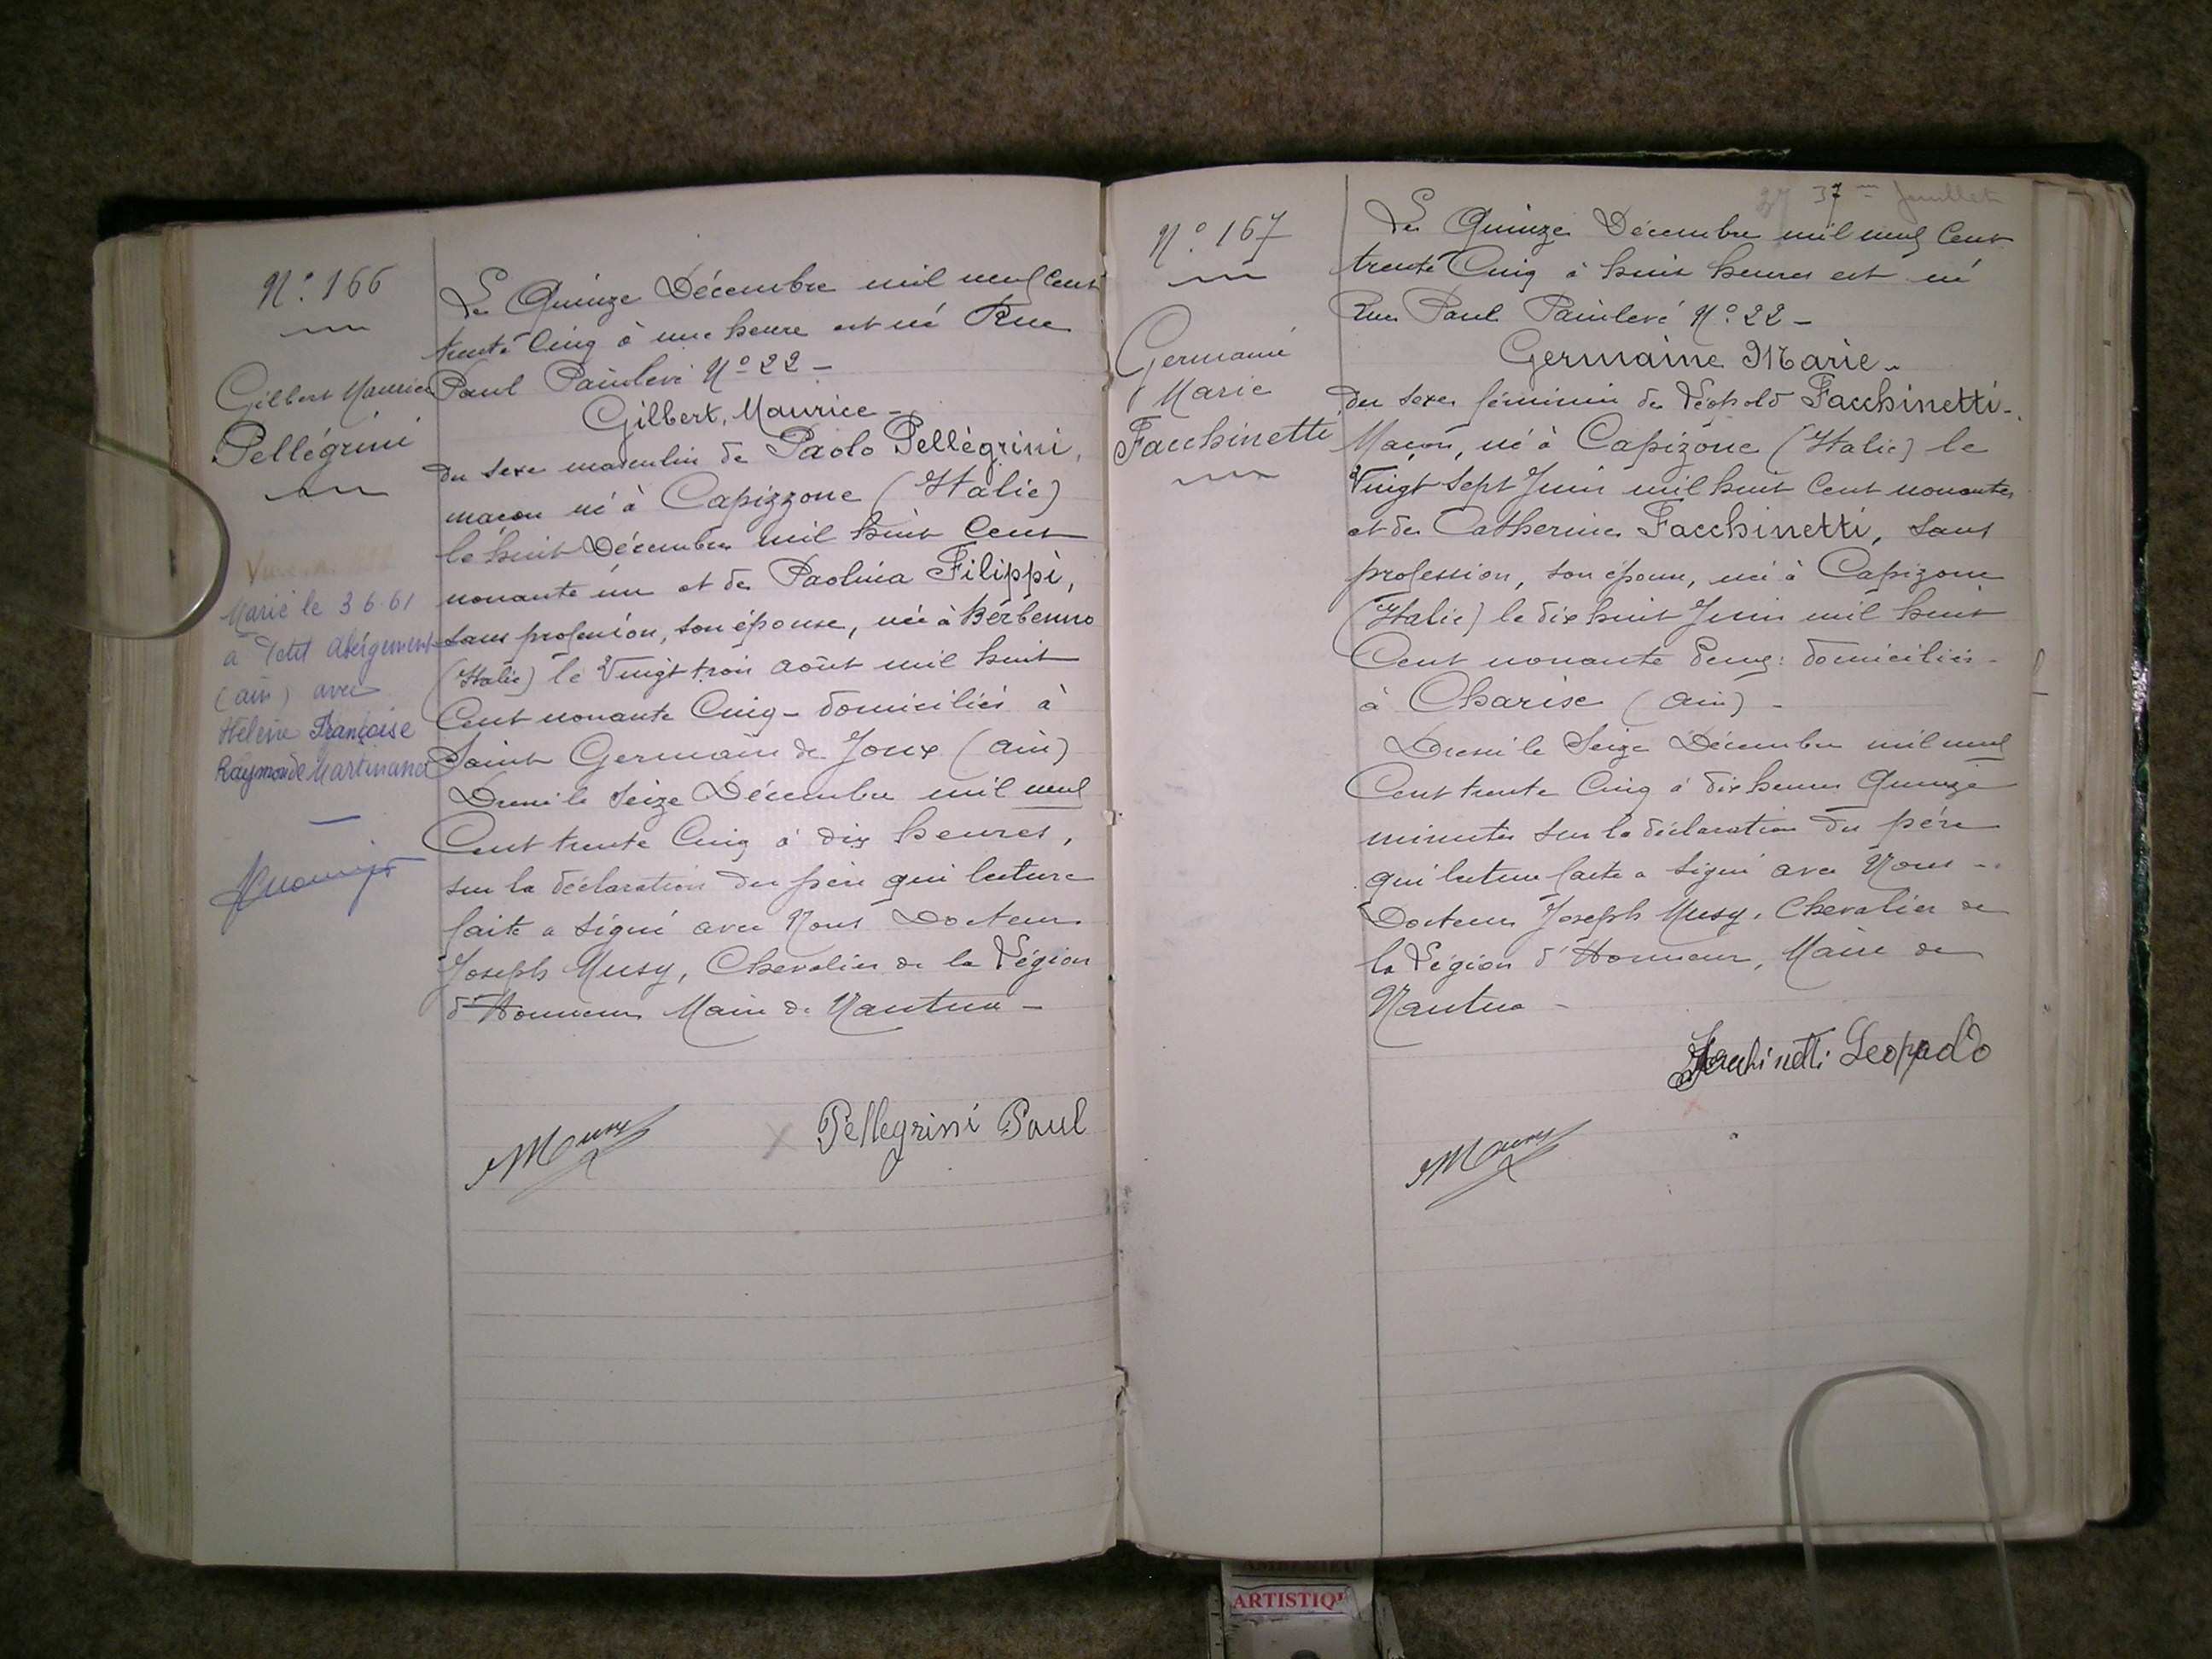 N° 166
Gilbert Maurice
Pellégrini
Marié le 3.6.61
à Petit Abergement
(ain) avec
Hélène Françoise
Raymonde Martinand
Le Quinze Décembre mil neuf Cent
trente Cinq à une heure est né Rue
Paul Painlevé N° 22 -
Gilbert, Maurice -
du sexe masculin de Paolo Pellègrini,
maçon né à Capizzone (Italie)
le huit Décembre mil huit Cent
nonante un et de Paolina Filippi,
sans profession, son épouse, née à Berbenno
(Italie) le Vingt trois août mil huit
Cent nonante Cinq - domiciliés à
Saint Germain de Joux (ain)
Dressé le Seize Décembre mil neuf
Cent trente Cinq à dix heures,
sur la déclaration du père qui lecture
faite a signé avec Nous Docteur
Joseph Musy, Chevalier de la Légion
d'Honneur Maire de Nantua -
Musy
Pellegrini Paul
37 37me feuillet
N° 167
Germaine
Marie
Facchinetti
Le Quinze Décembre mil neuf Cent
trente Cinq à huit heures est né
Rue Paul Painlevé N° 22 -
Germaine Marie -
du sexe féminin de Léopold Facchinetti -
Maçon, né à Capizone (Italie) le
Vingt Sept Juin mil huit Cent nonante
et de Catherine Facchinetti, sans
profession, son épouse, née à Capizone
(Italie) le dix huit Juin mil huit
Cent nonante Deux : domiciliés -
à Charise (ain) -
Dressé le Seize Décembre mil neuf
Cent trente Cinq à dix heures Quinze
minutes sur la déclaration du père
qui lecture faite a signé avec Nous -
Docteur Joseph Musy, Chevalier de
la Légion d'Honneur, Maire de
Nantua -
Facchinetti Leopoldo
Musy
ARTISTIQ